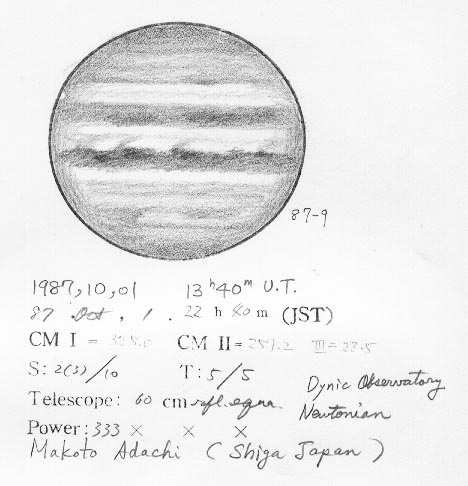 87-9
1987,10,01 13h40m U.T.
87 Oct, 1. 22 h 40 m (JST)
CM I = 325.0 CM II = 257.2 III = 28.5
S: 2(3)/10 T: 5/5
Dynic Observatory
Telescope: 60 cm refl. equa. Newtonian
Power: 333 × × ×
Makoto Adachi (Shiga Japan)